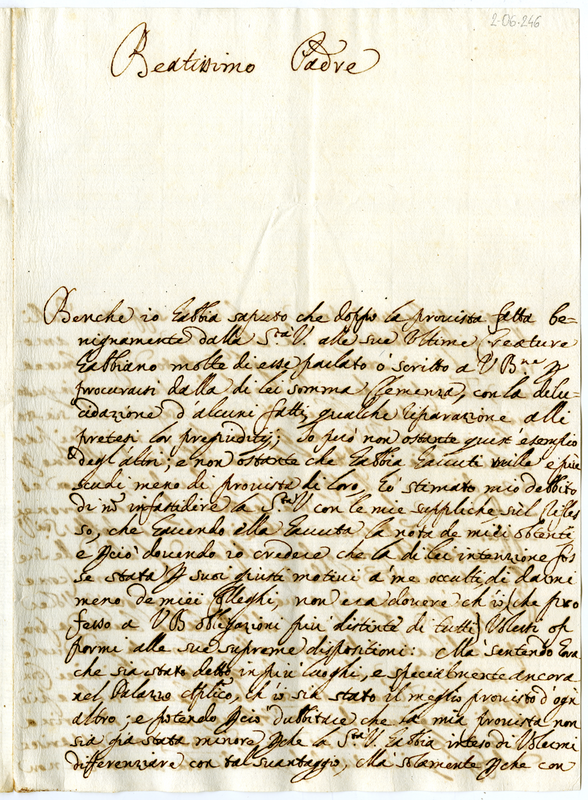 2-06-246
Beatissimo Padre
Benche io habbia saputo che doppo la provista fatta be-
nignamente dalla S.tà V. alle sue Ultime Creature
habbiano molte di esse parlato ò scritto a V B.ne p
procurarsi dalla di lei somma Clemenza, con la dilu-
cidazione d'alcuni fatti, qualche riparazione alli
pretesi lor pregiuditij; Io però non ostante quest'esempio
degl'altri, e non ostante che habbia hauuti mille e più
scudi meno di provista di loro, hò stimato mio debbito
di nō infastidire la S.tà V con le mie suppliche sul rifles-
so, che hauendo ella hauuta la nota de miei
e pciò douendo io credere che la di lei intenzione fos-
se stata p suoi giusti motivi à me occulti, di darmi
meno de miei Colleghi, non era douere ch'io (che pro
fesso a VB obligazioni più distinte di tutti) Volessi op
pormi alle sue supreme dispositioni: Ma sentendo hora
che sia stato detto in più luoghi, e specialmente ancora
nel Palazzo Aplico, ch'io sia stato il meglio provisto d'ogn
altro, e potendo pciò dubbitare che la mia provista non
sia già stata minore pche la S.tà V. habbia inteso di Volermi
differenzare con tal suantaggio, Ma solamente pche con